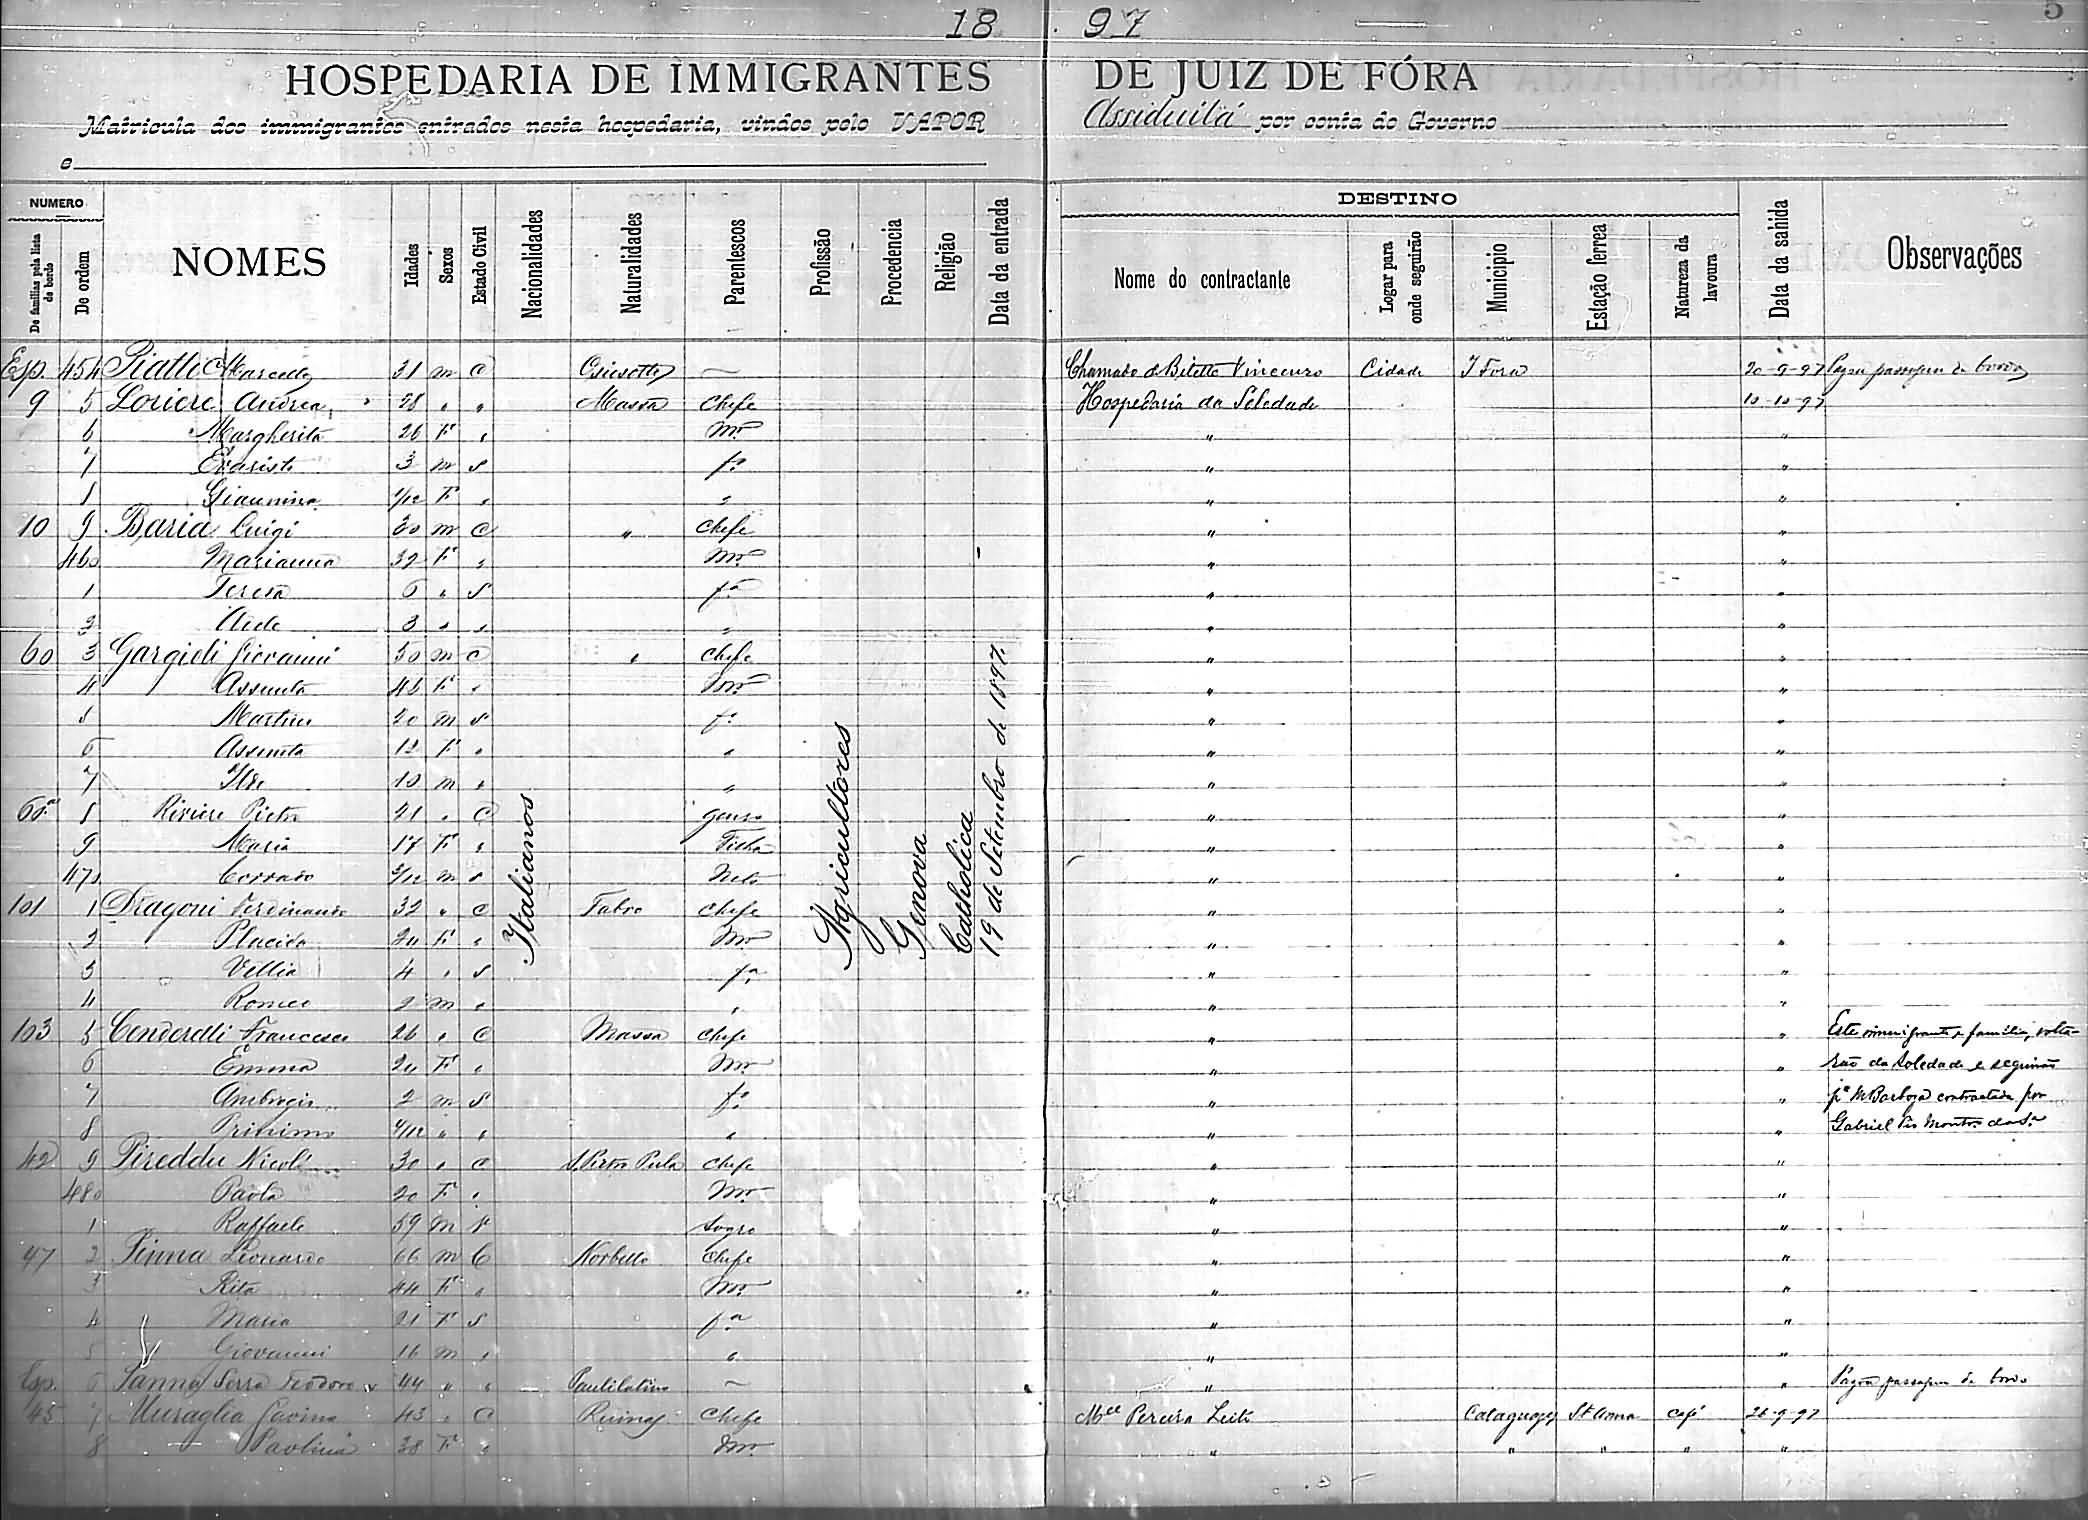 18 97
5
HOSPEDARIA DE IMMIGRANTES DE JUIZ DE FÓRA
Matricula dos immigrantes entrados nesta hospedaria, vindos pelo VAPOR Assiduitá por conta do Governo
e
NUMERO
De familias pela lista de bordo
De ordem
NOMES
Idades
Sexos
Estado Civil
Nacionalidades
Naturalidades
Parentescos
Profissão
Procedencia
Religião
Data da entrada
DESTINO
Nome do contractante
Logar para onde seguirão
Municipio
Estação ferrea
Natureza da lavoura
Data da sahida
Observações
Esp. 454 31 m C — Chamado Vincenzo Cidade J Fora 20-9-97 passagem de bordo
9 5 Loriere Andrea 28 " " Massa Chefe Hospedaria da Soledade 10-10-97
6 Margherita 26 F " Mer " "
7 Evaristo 3 m S fo " "
1 Giannina 1/12 F " " " "
10 9 Baria Luigi 30 m C " Chefe " "
460 Marianna 32 F " Mer " "
1 Teresa 6 " S fa " "
2 3 " " " " "
60 3 Gargioli Giovanni 50 m C " Chefe " "
4 Assunta 46 F " Mer " "
5 Martino 20 m S fo " "
6 Assunta 12 F " " " "
7 10 m " " " "
60a 8 Riviere Pietro 21 " C genro " "
9 Maria 17 F " Filha " "
470 Corrado 3/12 m S Neto " "
101 1 Dragoni Ferdinando 32 " C Chefe " "
2 Placida 24 F " Mer " "
3 Vellia 4 " S fa " "
4 Romeo 2 m " " " "
103 5 Cenderelli Francesco 26 " C Massa Chefe " " Este immigrante e familia, volta-
6 Emma 24 F " Mer " " rão da Soledade e seguirão
7 Ambrogio 2 m S fo " " pa M Barboza contractado por
8 Primimo 4/12 " " " " " Gabriel
42 9 Pireddu Nicolí 30 " C S. Pietro Pula Chefe " "
480 Paola 20 F " Mer " "
1 Raffaele 59 m Sogro " "
47 2 Pinna Leonardo 66 m C Norbello Chefe " "
3 Rita 44 F " Mer " "
4 Maria 21 F S fa " "
5 Giovanni 16 m " " " "
Esp. 6 Sanna Serra Teodoro 44 " " Paulilatino — " " Pagou passagem de bordo
45 7 Muraglia Gavino 43 " C Ruinas Chefe Mel Pereira Leite Cataguazes Sta Anna Café 26-9-97
8 Paolina 38 F " Mer " " " " "
Italianos
Agricultores
Genova
Catholica
19 de Setembro de 1897.